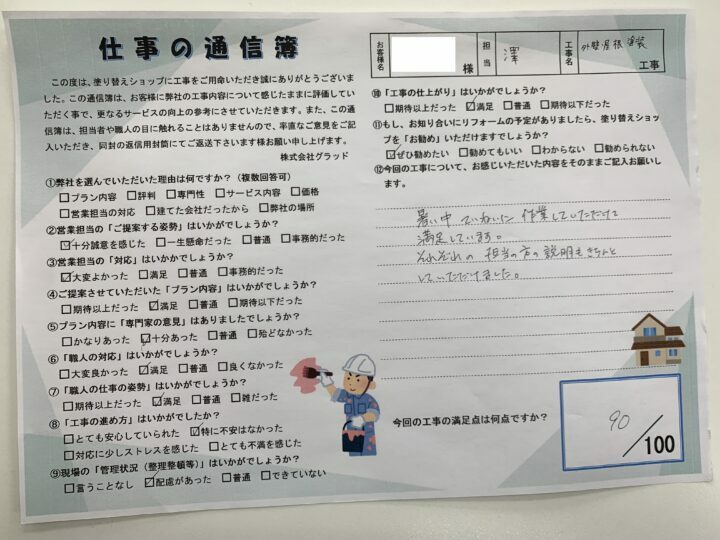 仕事の通信簿
この度は、塗り替えショップに工事をご用命いただき誠にありがとうございました。
この通信簿は、お客様に弊社の工事内容について感じたままに評価していただく事で、更なるサービスの向上の参考にさせていただきます。また、この通信簿は、担当者や職人の目に触れることはありませんので、率直なご意見をご記入いただき、同封の返信用封筒にてご返送下さいます様お願い申し上げます。
株式会社グラッド
①弊社を選んでいただいた理由は何ですか？（複数回答可）
□プラン内容 □評判 □専門性 □サービス内容 □価格
□営業担当の対応 □建てた会社だったから □弊社の場所
②営業担当の「ご提案する姿勢」はいかがでしょうか？
☑十分誠意を感じた □一生懸命だった □普通 □事務的だった
③営業担当の「対応」はいかかでしょうか？
☑大変よかった □満足 □普通 □事務的だった
④ご提案させていただいた「プラン内容」はいかがでしょうか？
□期待以上だった ☑満足 □普通 □期待以下だった
⑤プラン内容に「専門家の意見」はありましたでしょうか？
□かなりあった ☑十分あった □普通 □殆どなかった
⑥「職人の対応」はいかがでしょうか？
□大変良かった ☑満足 □普通 □良くなかった
⑦「職人の仕事の姿勢」はいかがでしょうか？
□期待以上だった ☑満足 □普通 □雑だった
⑧「工事の進め方」はいかがでしたか？
□とても安心していられた ☑特に不安はなかった
□対応に少しストレスを感じた □とても不満を感じた
⑨現場の「管理状況（整理整頓等）」はいかがでしょうか？
□言うことなし ☑配慮があった □普通 □できていない
お客様名 様 担当 澤 工事名 外壁屋根塗装 工事
⑩「工事の仕上がり」はいかがでしょうか？
□期待以上だった ☑満足 □普通 □期待以下だった
⑪もし、お知り合いにリフォームの予定がありましたら、塗り替えショップを「お勧め」いただけますでしょうか？
☑ぜひ勧めたい □勧めてもいい □わからない □勧められない
⑫今回の工事について、お感じいただいた内容をそのままご記入お願いします。
暑い中 ていねいに 作業していただけて
満足しています。
それぞれの 担当の方の説明もきちんと
していただけました。
今回の工事の満足点は何点ですか？
90/100